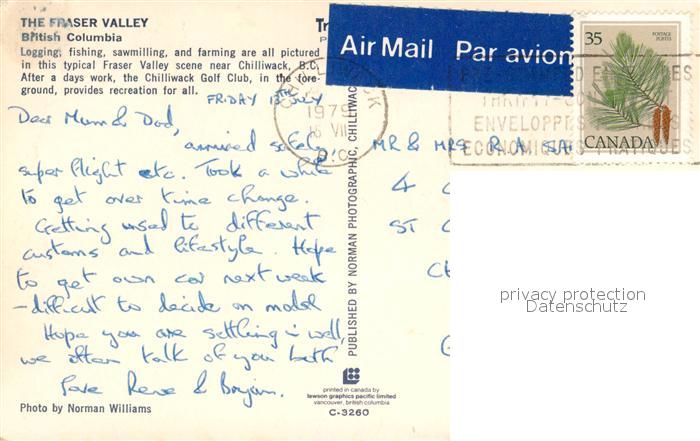 THE FRASER VALLEY
British Columbia
Logging, fishing, sawmilling, and farming are all pictured
in this typical Fraser Valley scene near Chilliwack, B.C.
After a days work, the Chilliwack Golf Club, in the fore-
ground, provides recreation for all.
FRIDAY 13TH JULY
Dear Mum & Dad,
arrived safely
super flight etc. Took a while
to get over time change.
Getting used to different
customs and lifestyle. Hope
to get own car next week
- difficult to decide on model
Hope you are settling in well,
we often talk of you both
Love Rene & Bryan.
Photo by Norman Williams
PUBLISHED BY NORMAN PHOTOGRAPHIC, CHILLIWACK
printed in canada by
lawson graphics pacific limited
vancouver, british columbia
C-3260
Air Mail Par avion
1979
16 VII
35
POSTAGE
POSTES
CANADA
ENVELOPPES
ECONOMIQUES PRATIQUES
MR & MRS R A
4
ST
privacy protection
Datenschutz